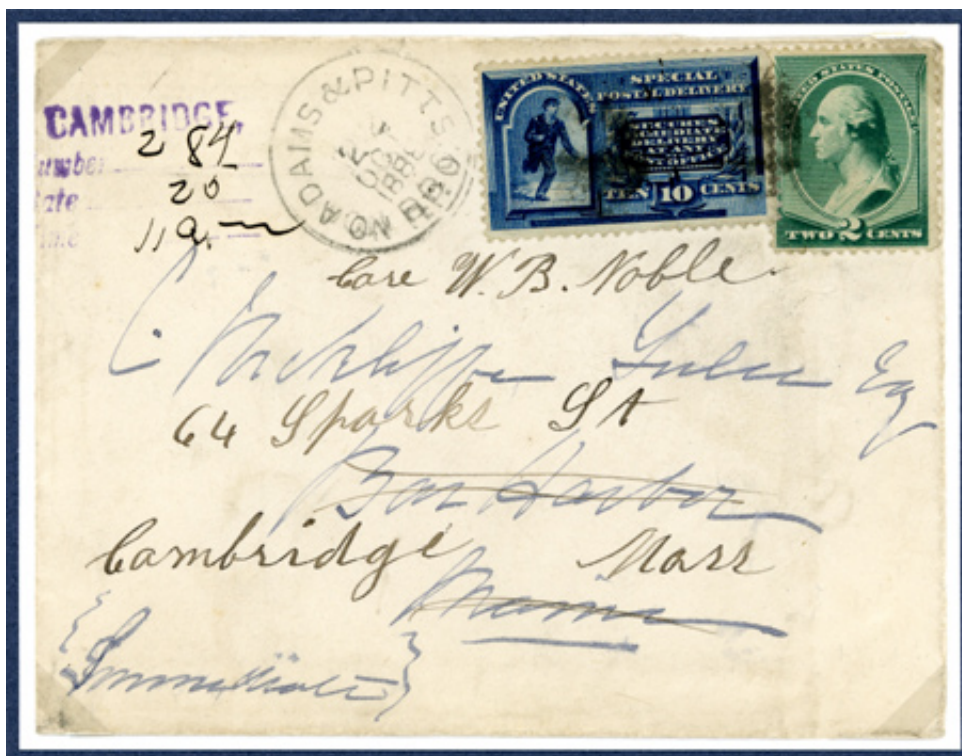 CAMBRIDGE,
Number 2 84
Date 20
11 a
ADAMS & PITTSFIELD
1886
UNITED STATES
SPECIAL
POSTAL DELIVERY
SECURES
IMMEDIATE
DELIVERY
AT ANY
POST OFFICE
TEN 10 CENTS
UNITED STATES POSTAGE
TWO 2 CENTS
Care W. B. Noble.
Esq
64 Sparks St
Bar Harbor
Cambridge Mass
Maine
{Immediate}